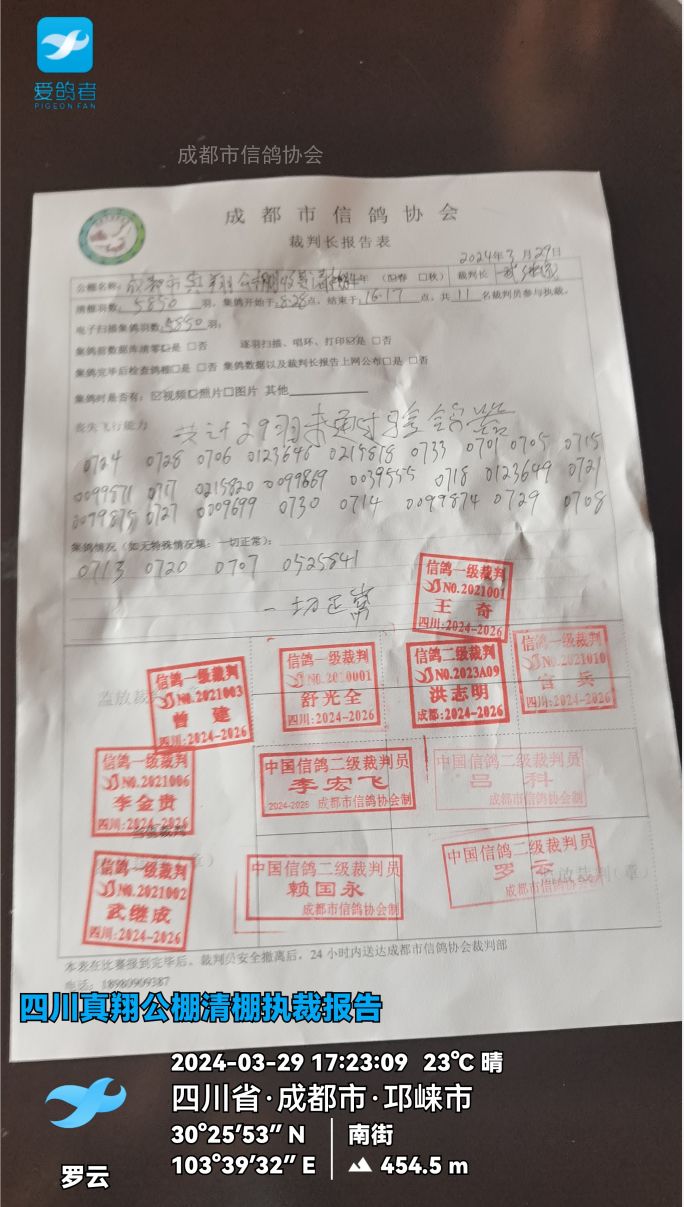 爱鸽者
PIGEON FAN
成都市信鸽协会
成都市信鸽协会
裁判长报告表
2024年3月29日
公棚名称: 成都市真翔公棚 年 (春 □秋) 裁判长
清棚羽数: 5850 羽, 集鸽开始于: 8:28点, 结束于: 16:17 点, 共 11 名裁判员参与执裁。
电子扫描集鸽羽数: 5850 羽;
集鸽前数据库清零☑是 □否 逐羽扫描、唱环、打印☑是 □否
集鸽完毕后检查鸽棚□是 □否 集鸽数据以及裁判长报告上网公布□是 □否
集鸽时是否有: ☑视频☑照片□图片 其他
丧失飞行能力 共计29羽未通过验鸽器
0724 0728 0706 0123646 0215818 0733 0701 0705 0715
0099871 0717 0215820 0099869 0039555 0718 0123649 0721
0099875 0727 0009699 0730 0714 0099874 0729 0708
集鸽情况 (如无特殊情况填: 一切正常):
0713 0720 0707 0525841
一切正常
信鸽一级裁判
NO.2021001
王奇
四川:2024-2026
信鸽一级裁判
NO.2021003
曾建
四川:2024-2026
信鸽一级裁判
NO.2010001
舒光全
四川:2024-2026
信鸽二级裁判
NO.2023A09
洪志明
成都:2024-2026
信鸽一级裁判
NO.2021010
四川:2024-2026
信鸽一级裁判
NO.2021006
李金贵
四川:2024-2026
中国信鸽二级裁判员
李宏飞
2024-2026 成都市信鸽协会制
中国信鸽二级裁判员
吕科
成都市信鸽协会制
信鸽一级裁判
NO.2021002
武继成
四川:2024-2026
中国信鸽二级裁判员
赖国永
成都市信鸽协会制
中国信鸽二级裁判员
罗云
成都市信鸽协会
监放裁判(章)
本表在比赛报到完毕后、裁判员安全撤离后, 24小时内送达成都市信鸽协会裁判部
电话: 18980909387
四川真翔公棚清棚执裁报告
2024-03-29 17:23:09 23℃ 晴
四川省·成都市·邛崃市
30°25'53" N 南街
103°39'32" E 454.5 m
罗云